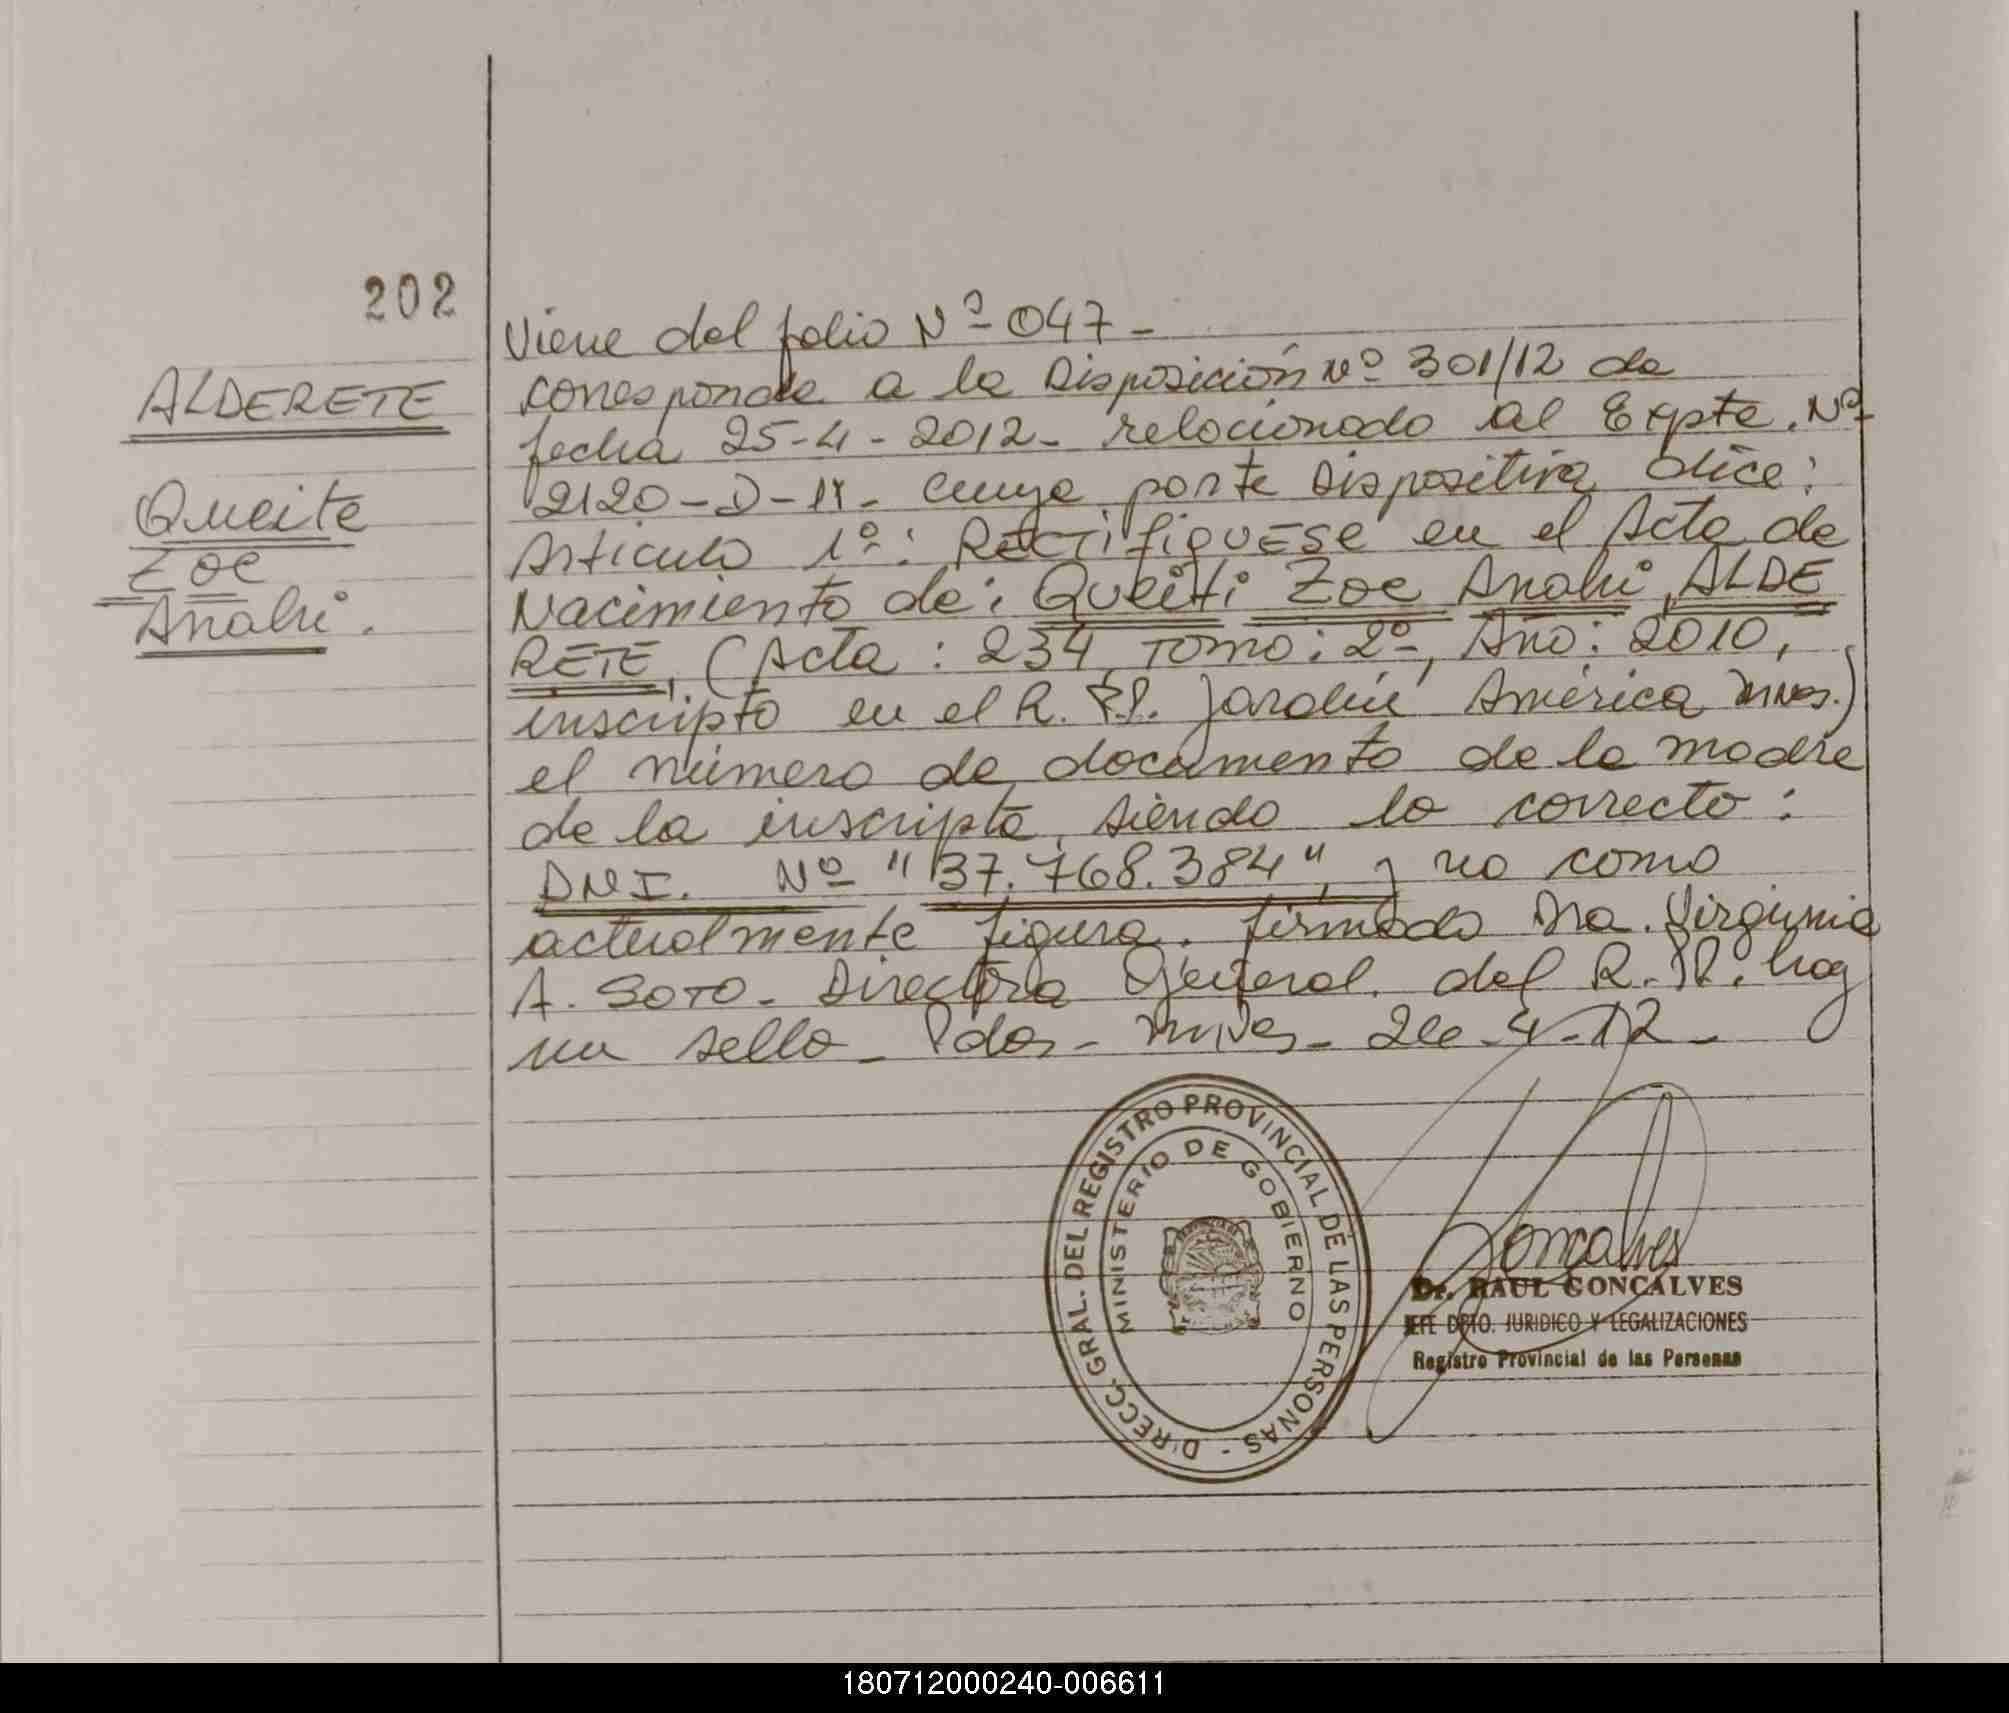 202
ALDERETE
Queite
Zoe
Anahi.
Viene del folio Nº 047-
corresponde a la Disposición Nº 301/12 de
fecha 25-4-2012- relacionado al Expte. Nº
2120-D-11- cuya parte dispositiva dice:
Articulo 1º: RECTifiQUESE en el Acta de
Nacimiento de: Queiti Zoe Anahi, ALDE
RETE, (Acta: 234, Tomo: 2º, Año: 2010,
inscripto en el R.P.P. Jardín América Mnes.)
el número de documento de la madre
de la inscripta, siendo lo correcto:
DNI. Nº "37.768.384", y no como
actualmente figura. firmado Dra. Virginia
A. SOTO- Directora General del R.P.P. hay
un sello- Pdas- Mnes- 26-4-12-
DIRECC. GRAL. DEL REGISTRO PROVINCIAL DE LAS PERSONAS -
MINISTERIO DE GOBIERNO
Goncalves
Dr. RAUL GONCALVES
JEFE DPTO. JURIDICO Y LEGALIZACIONES
Registro Provincial de las Personas
180712000240-006611